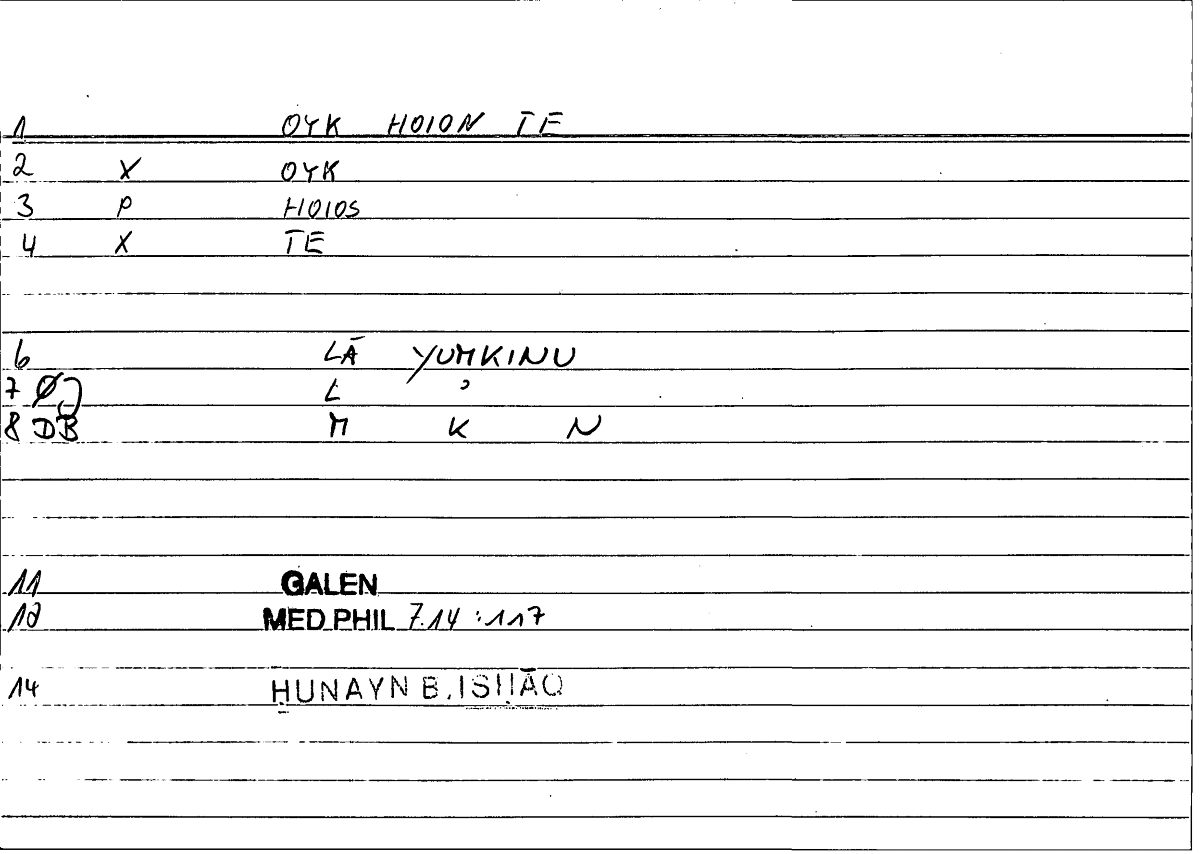 1 OYK HOION TE
2 X OYK
3 P HOIOS
4 X TE
6 LĀ YUMKINU
7 Ø) L ʾ
8 DB M K N
11 GALEN
12 MED PHIL 7.14 :117
14 ḤUNAYN B. ISḤĀQ